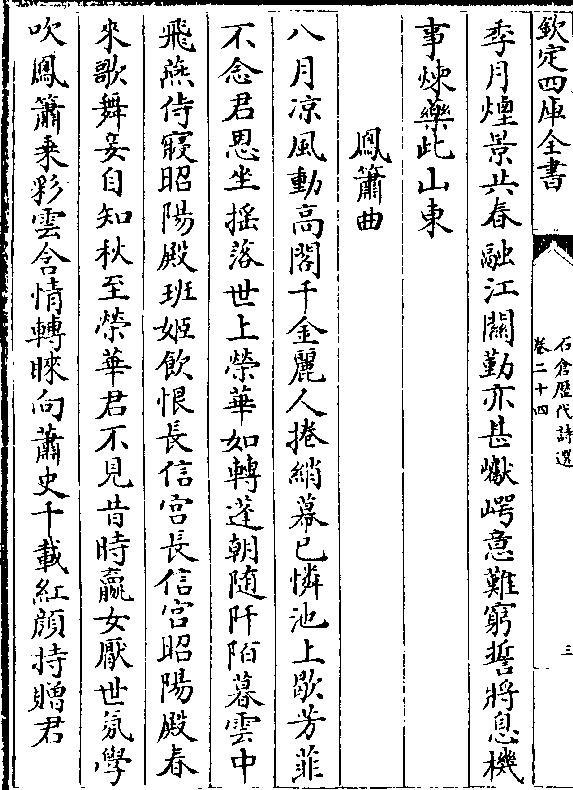 欽定四庫全書
石倉歴代詩選
卷二十四
三
季月煙景共春融江關勤亦甚巘崿意難窮誓將息機
事煉藥此山東
鳳簫曲
八月凉風動高閣千金麗人捲綃幕已憐池上歇芳菲
不念君恩坐揺落世上榮華如轉蓬朝隨阡陌暮雲中
飛燕侍寢昭陽殿班姬飲恨長信宮長信宮昭陽殿春
來歌舞妾自知秋至榮華君不見昔時嬴女厭世氛學
吹鳳簫乗彩雲含情轉睞向蕭史千載紅顔持贈君